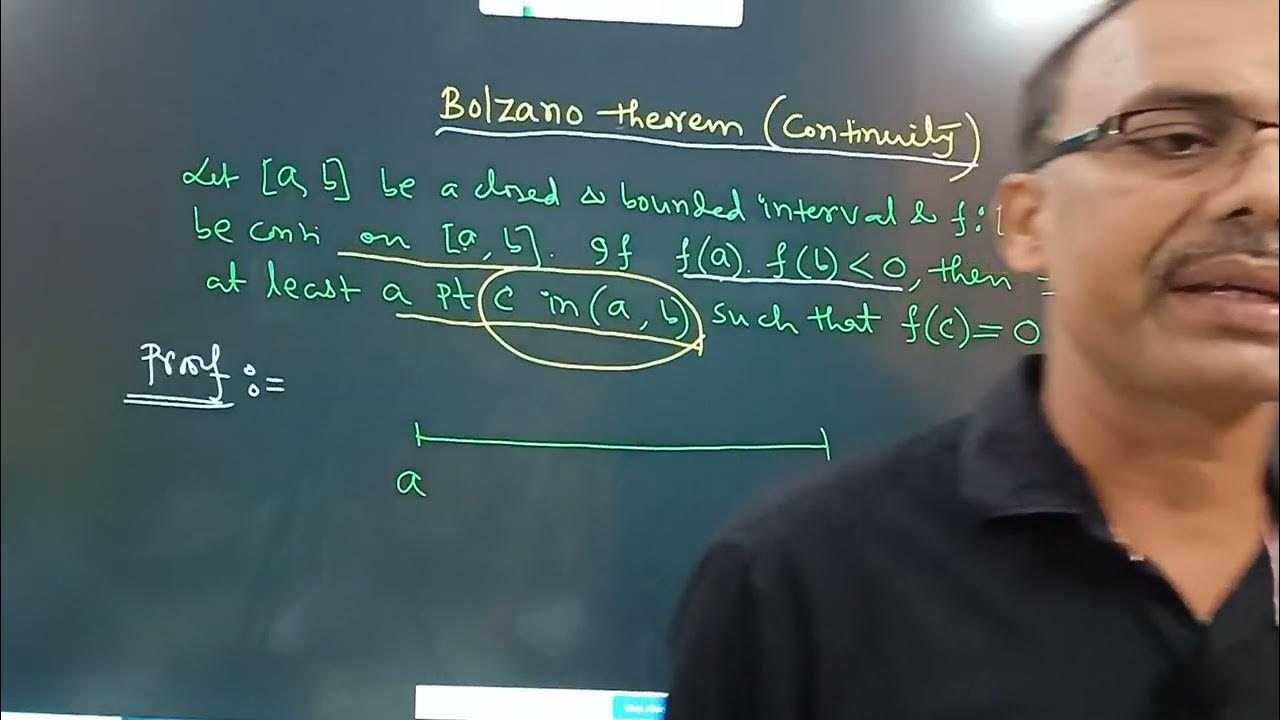 Bolzano theorem (Continuity)
Let [a, b] be a closed & bounded interval & f: [
be conti on [a, b]. If f(a). f(b) < 0, then
at least a pt C in (a, b) such that f(c) = 0
Proof :=
a